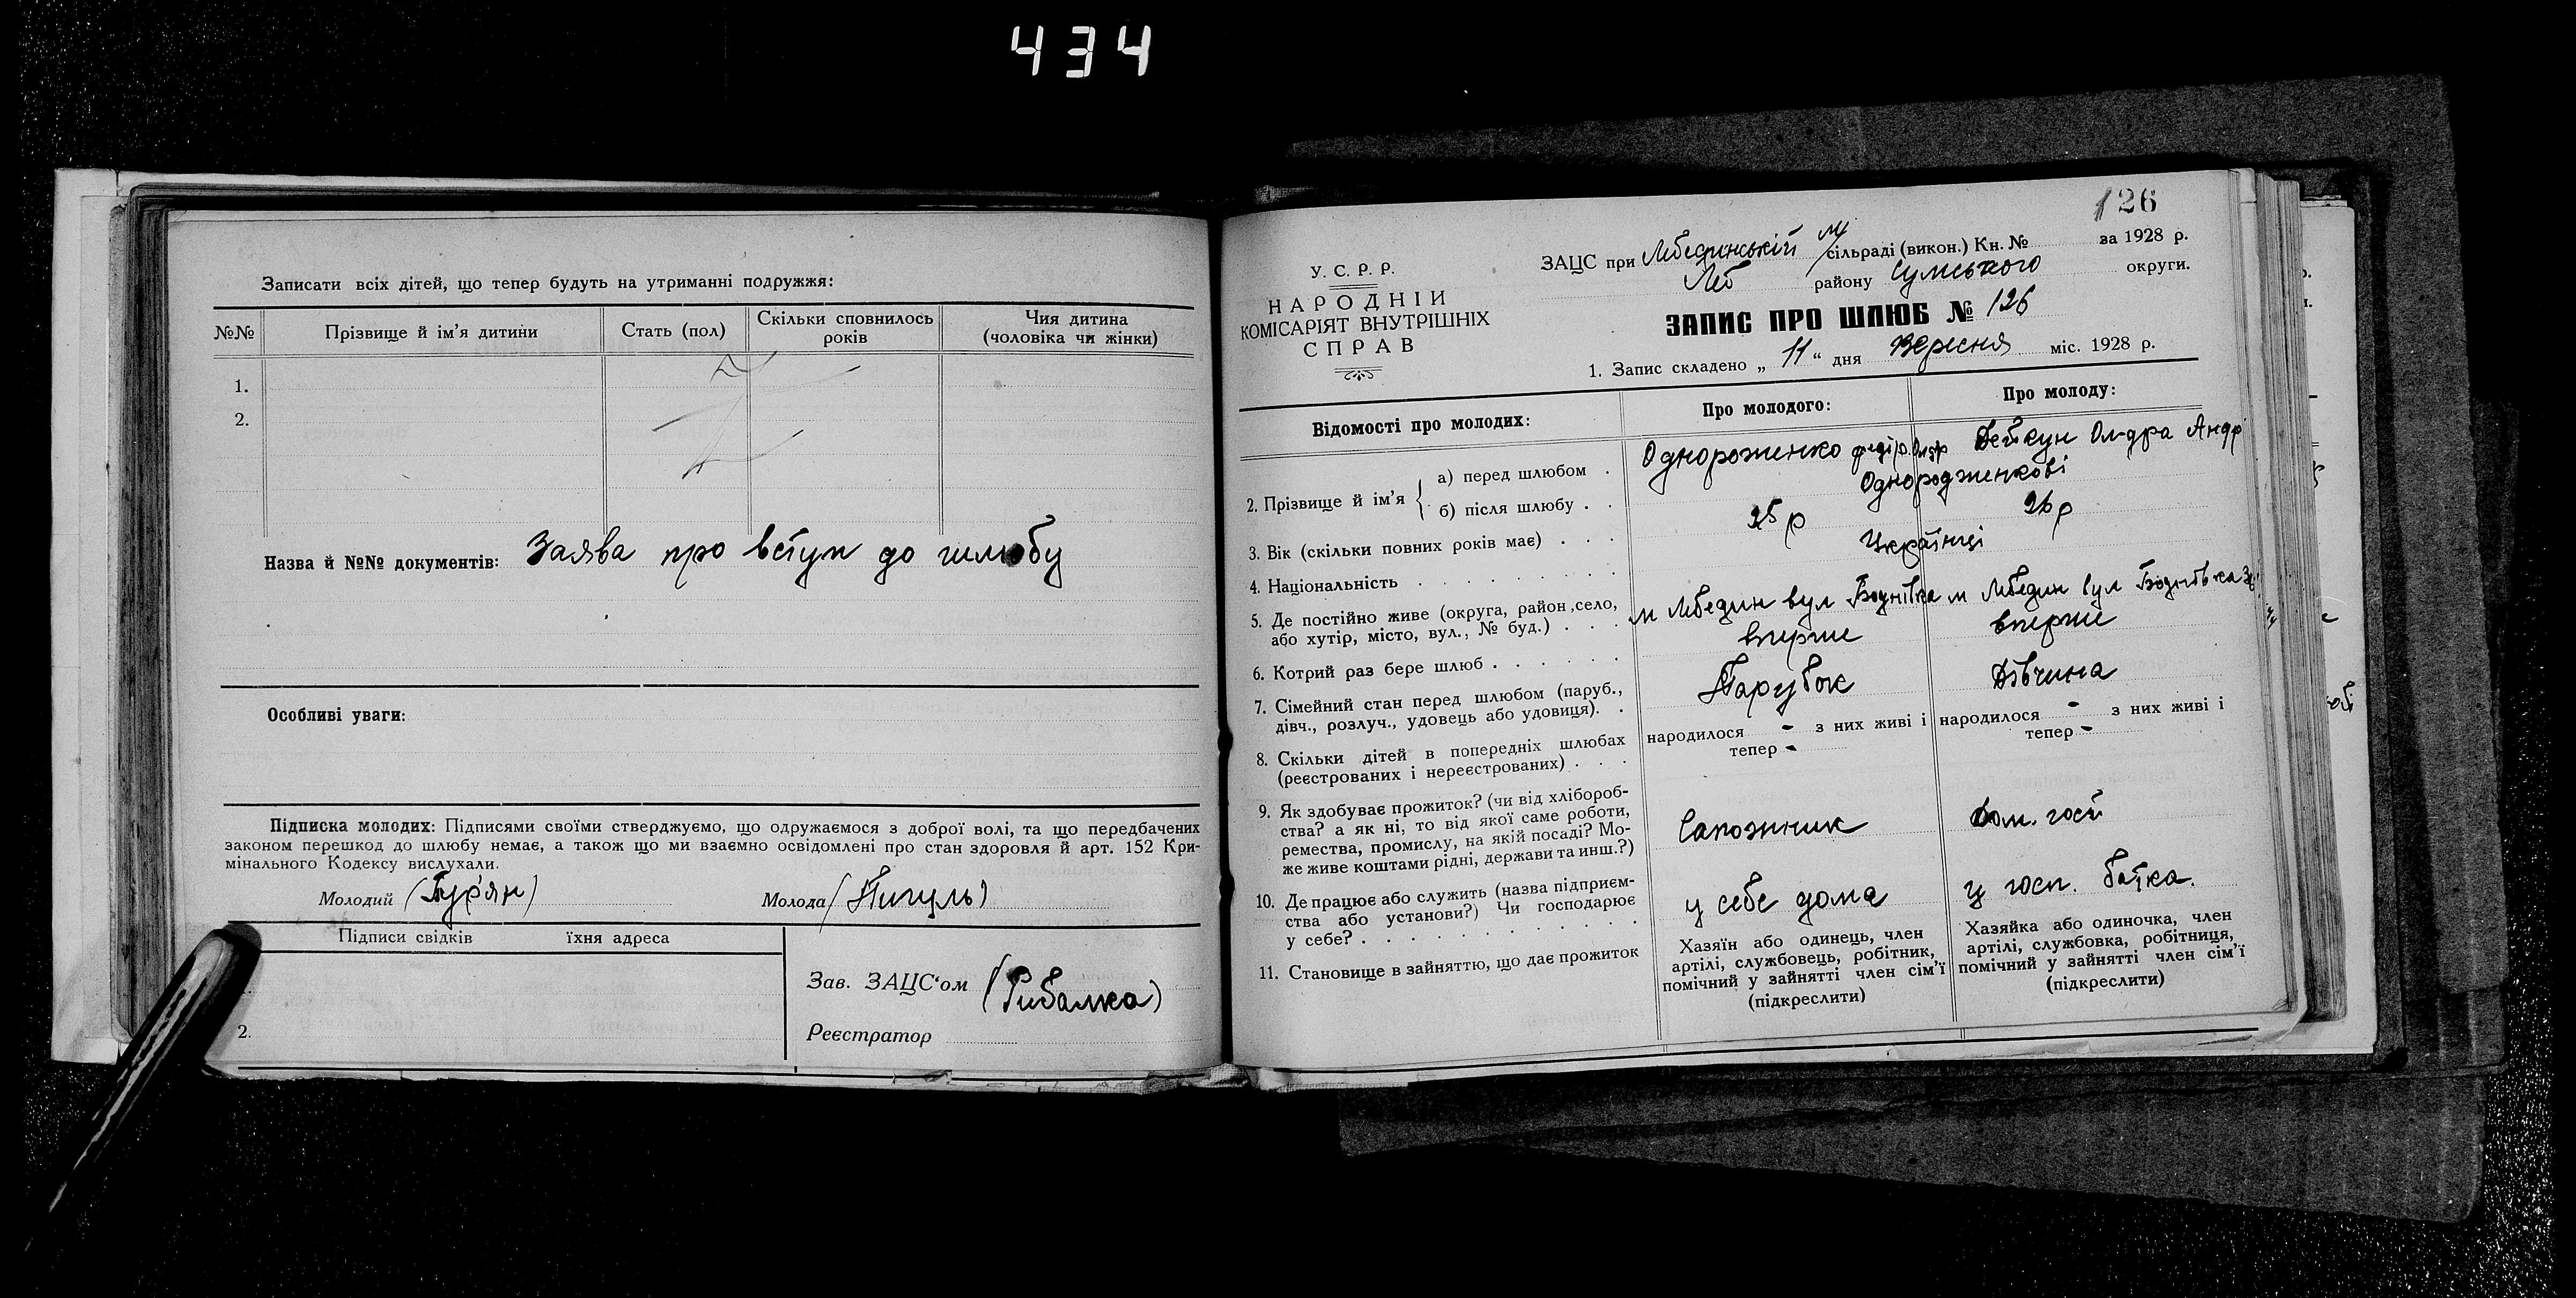 434
Записати всіх дітей, що тепер будуть на утриманні подружжя:
№№ Прізвище й ім'я дитини Стать (пол) Скільки сповнилось років Чия дитина (чоловіка чи жінки)
1.
2.
Назва й №№ документів: Заява про вступ до шлюбу
Особливі уваги:
Підписка молодих: Підписями своїми стверджуємо, що одружаємося з доброї волі, та що передбачених
законом перешкод до шлюбу немає, а також що ми взаємно освідомлені про стан здоров'я й арт. 152 Кри-
мінального Кодексу вислухали.
Молодий (Гур'ян) Молода (Пигуль)
Підписи свідків їхня адреса
2.
Зав. ЗАЦС'ом (Рибалка)
Реєстратор
126
У. С. Р. Р.
НАРОДНІЙ
КОМІСАРІЯТ ВНУТРІШНІХ
СПРАВ
ЗАЦС при Лебединській м/сільраді (викон.) Кн. № за 1928 р.
Леб району Сумського округи.
ЗАПИС ПРО ШЛЮБ № 126
1. Запис складено „ 11 " дня Вересня міс. 1928 р.
Відомості про молодих: Про молодого: Про молоду:
2. Прізвище й ім'я
а) перед шлюбом . Однороженко Федір Ол-др Дейкун Ол-дра Андр
б) після шлюбу . . Однородженкові
3. Вік (скільки повних років має) . . . 25 р 26 р
4. Національність Українці
5. Де постійно живе (округа, район, село,
або хутір, місто, вул., № буд.) . . . м Лебедин вул Боднівка м Лебедин вул Боднівка
6. Котрий раз бере шлюб . . . . . . вперше вперше
7. Сімейний стан перед шлюбом (паруб.,
дівч., розлуч., удовець або удовиця). . Парубок Дівчина
8. Скільки дітей в попередніх шлюбах
(реєстрованих і нереєстрованих) . . .
народилося - з них живі і
тепер -
народилося - з них живі і
тепер -
9. Як здобуває прожиток? (чи від хлібороб-
ства? а як ні, то від якої саме роботи,
ремества, промислу, на якій посаді? Мо-
же живе коштами рідні, держави та инш.?)
Сапожник Дом. госп
10. Де працює або служить (назва підприєм-
ства або установи?) Чи господарює
у себе? . . . . . . . . . . . .
у себе дома у госп. батка.
11. Становище в зайняттю, що дає прожиток
Хазяїн або одинець, член
артілі, службовець, робітник,
помічний у зайнятті член сім'ї
(підкреслити)
Хазяйка або одиночка, член
артілі, службовка, робітниця,
помічний у зайнятті член сім'ї
(підкреслити)